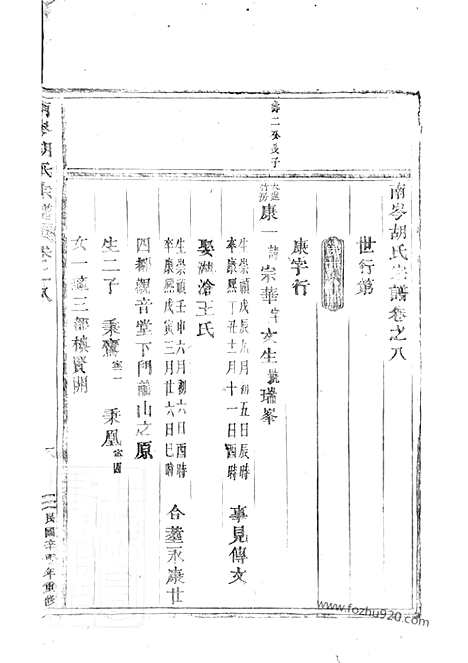 南岑胡氏宗譜卷之八
世行第
康字行
壽二公長子
康一 諱宗華字文生號瑞峯
生崇禎戊辰九月初五日辰時
卒康熙丁丑十二月十一日酉時
事見傳文
娶湖滄王氏
生崇禎壬申六月初六日酉時
卒康熙戊寅三月廿六日巳時
合葬永康廿
四都觀音堂下間龍山之原
生二子 秉鸞 寧一 秉鳳 寧四
女一適三都樓賢開
南岑胡氏宗譜 卷之八
民國辛未年重修
www.fozhu920.com